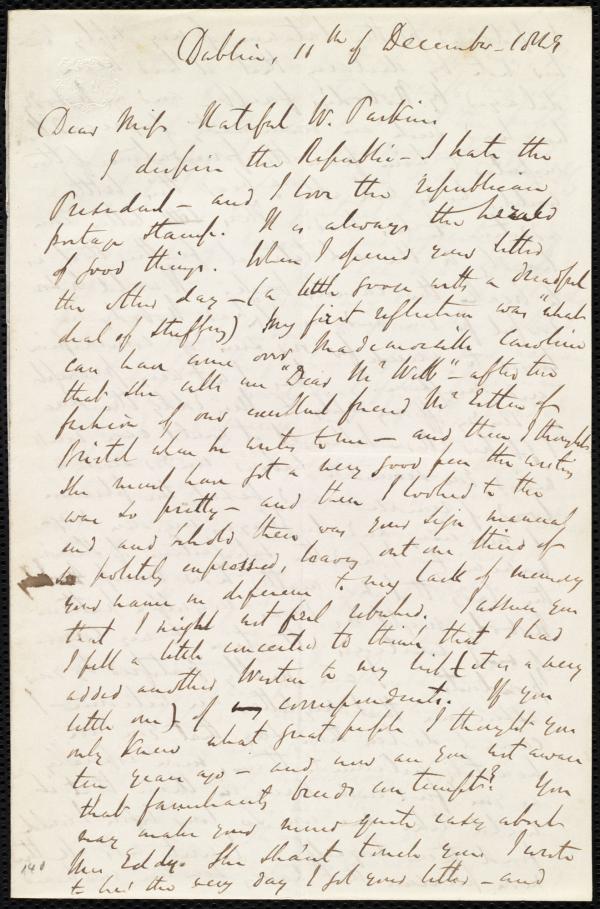 Dublin, 11th of December - 1843
Dear Miss Hateful W. Parkins
I despise the Republic - I hate the
President - and I love the republican
postage stamp. It is always the herald
of good things. When I opened your letter
the other day - (a little goose with a dreadful
deal of stuffing) my first reflection was "what
can have come over Mademoiselle Caroline
that she calls me "Dear Mr Webb" - after the
fashion of our excellent friend Mr Estlin of
Bristol when he writes to me - and then I thought
she must have got a very good pen the writing
was so pretty - and then I looked to the
end and behold there was your sign manual
so politely expressed, leaving out one third of
your name in deference to my lack of memory
that I might not feel rebuked. I assure you
I felt a little conceited to think that I had
added another Weston to my list (it is a very
little one) - of correspondents. If you
only knew what great people I thought you
ten years ago - and now are you not aware
that familiarity breeds contempt? You
may make your mind quite easy about
Mrs Eddy. She shan't touch you. I wrote
to her the very day I got your letter - and
140